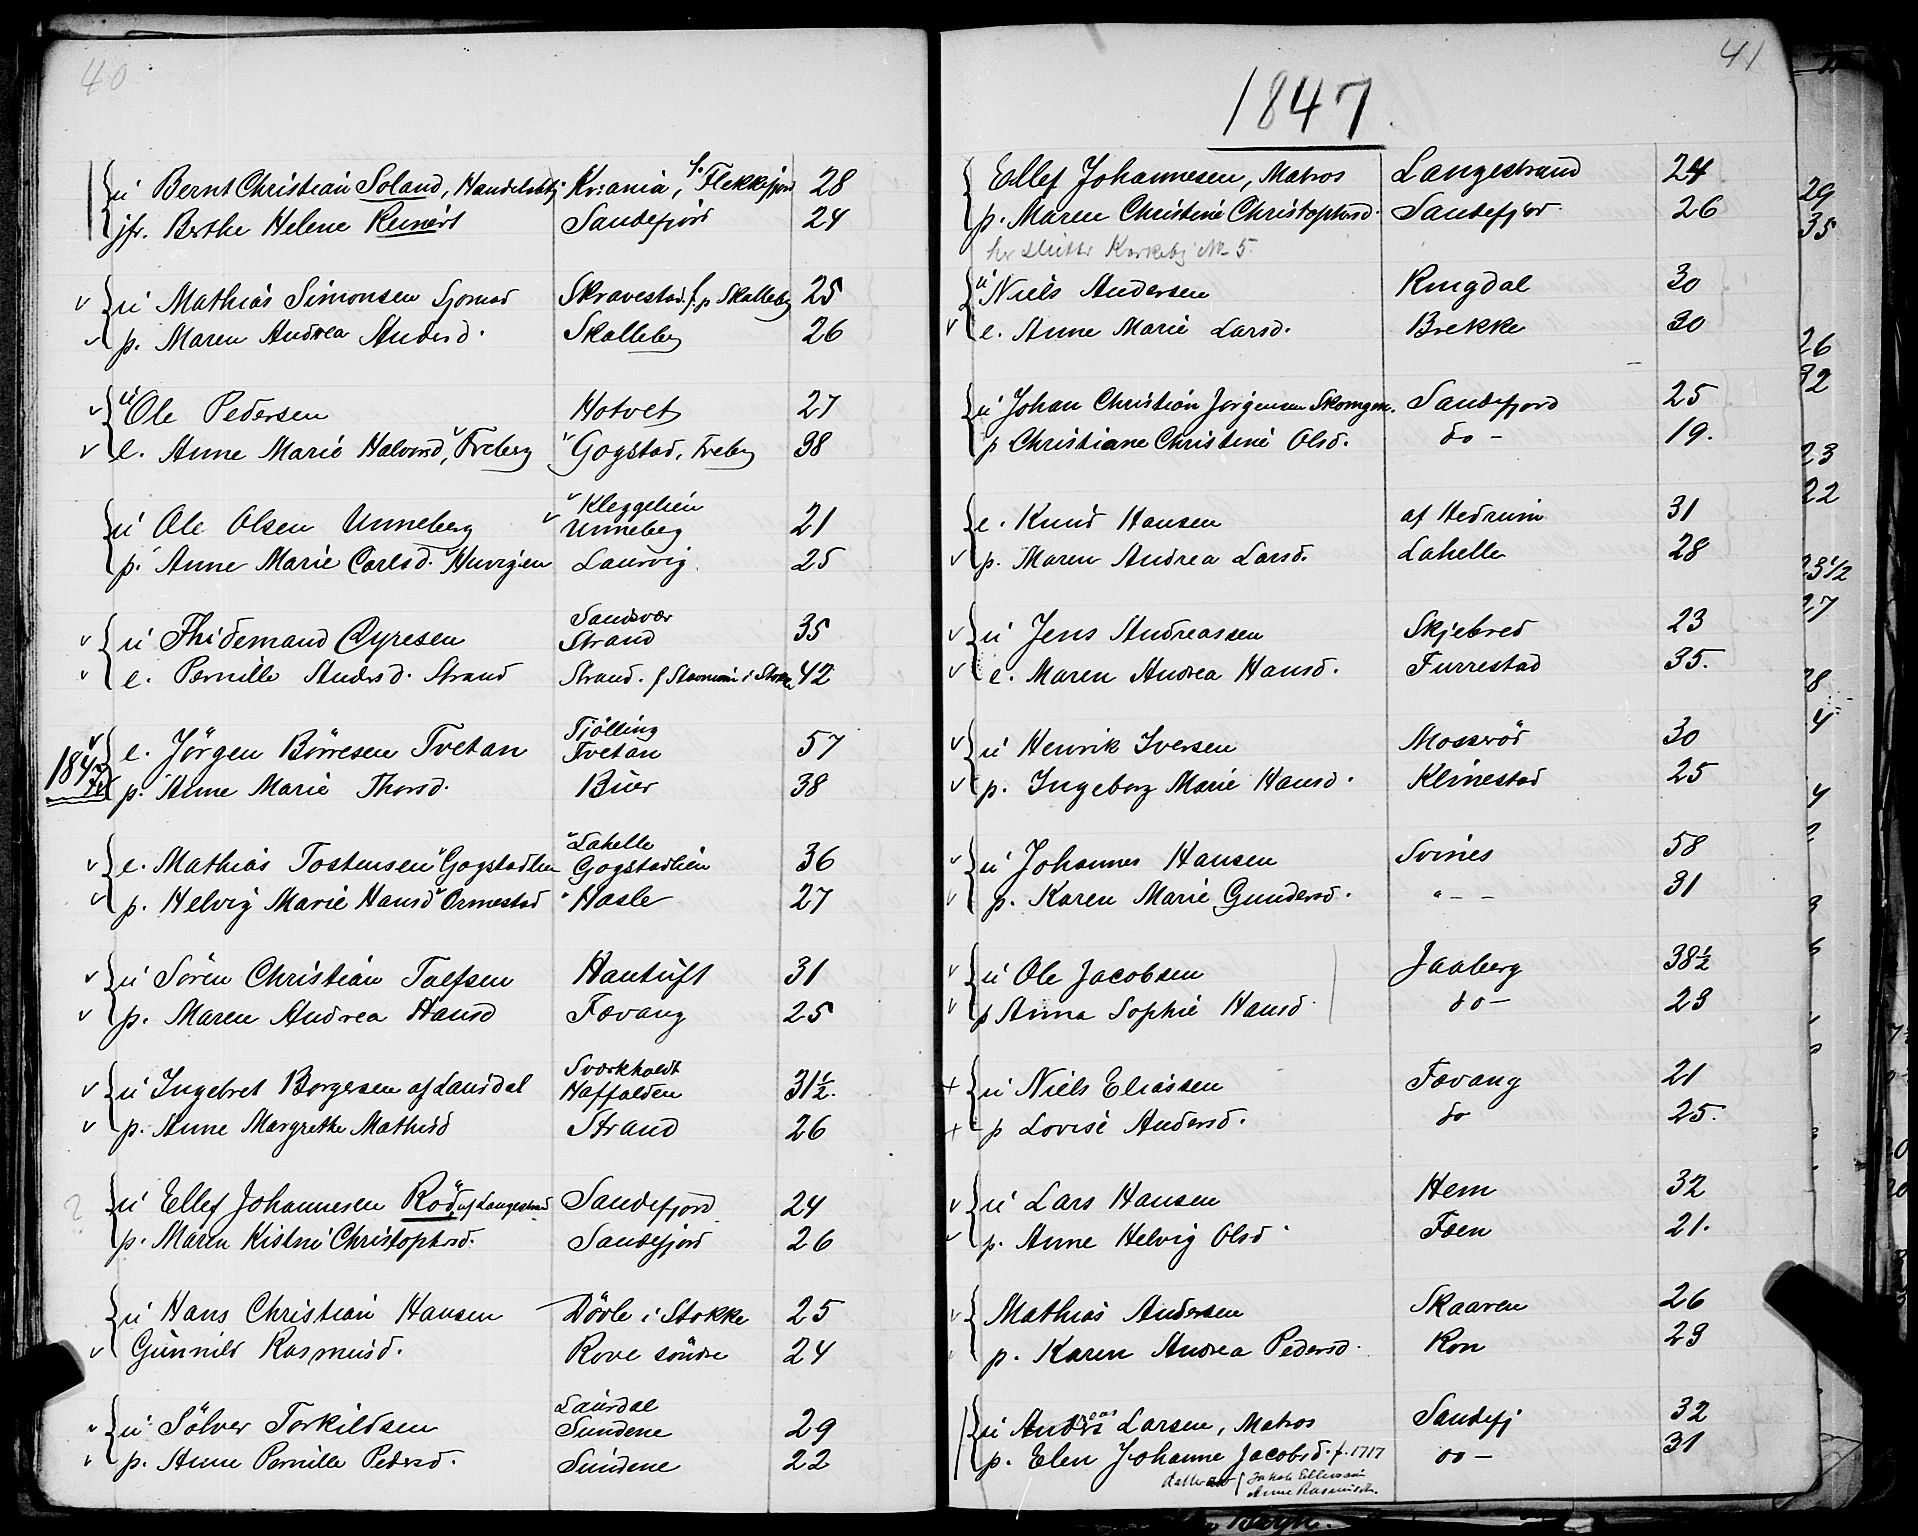 40
ú Bernt Christian Soland, Handelsbtj Kr:ania, f. Flekkefjord 28
jfr. Berthe Helene Reinert Sandefjord 24
ú Mathias Simonsen Sjomad Skravestad. f. p Skalleberg 25
p. Maren Andrea Andersd. Skalleberg 26
ú Ole Pedersen Hotvet 27
e. Anne Marie Halvorsd, Freberg Gogstad, Freberg 38
Kleggelien
ú Ole Olsen Unneberg Unneberg 21
p. Anne Marie Carlsd. Laurvig 25
Sandsvær
ú Thidemand Qyresen Strand 35
e. Pernille Andersd. Strand Strand. 42
Tjölling
e. Jörgen Börresen Tvetan Tvetan 57
1847
p. Anne Marie Thorsd. Büer 38
Lahelle
e. Mathias Tostensen Gogstadlien Gogstadlien 36
p. Helvig Marie Hansd Ormestad Hasle 27
ú Sören Christian Tolfsen Hantuft 31
p. Maren Andrea Hansd Fævang 25
Sværkholdt
ú Ingebret Borgersen af Laurdal Haffalden 31½.
p. Anne Margrethe Mathisd Strand 26
ú Ellef Johannesen Röd, af Langestrand Sandefjord 24
p. Maren Kistine Christophersd. Sandefjord 26
ú Hans Christian Hansen Dövle i Stokke 25
Gunnild Rasmusd. Rove söndre 24
Laurdal
ú Sölver Torkildsen Sundene 29
p. Anne Pernille Pedersd. Sundene 22
41
1847.
Ellef Johannesen, Matros Langestrand 24
p. Maren Christine Christophersd. Sandefjord. 26
her slutter Kirkebog No 5.
ú Niels Andersen Ringdal 30
e. Anne Marie Larsd. Brekke 30
ú Johan Christian Jörgensen Sandefjord 25
p Christiane Christine Olsd. do - 19.
e. Knud Hansen af Hedrum 31
p. Maren Andrea Larsd. Lahelle 28
ú Jens Andreassen Skjebred 23
e. Maren Andrea Hansd. Furrestad 35.
ú Henrik Iversen Mosserød 30
p. Ingeborg Marie Hansd. Klinestad 25
ú Johannes Hansen Svines 58
p. Karen Marie Gundersd. " - - 31
ú Ole Jacobsen Jaaberg 38½
p Anna Sophie Hansd. do - 23
+ ú Niels Eliassen Fævang 21
+ p Lovise Andersd. do 25.
ú Lars Hansen Hem 32
p. Anne Helvig Olsd Foen 21.
Mathias Andersen Skaaren 26
p. Karen Andrea Pedersd. Ron 23
ú Andreas Larsen, Matros Sandefj 32
p. Elen Johanne Jacobsd. f. 1717 do - 31
datter av Jakob Ellevsen
Anne Rasmusdtr.